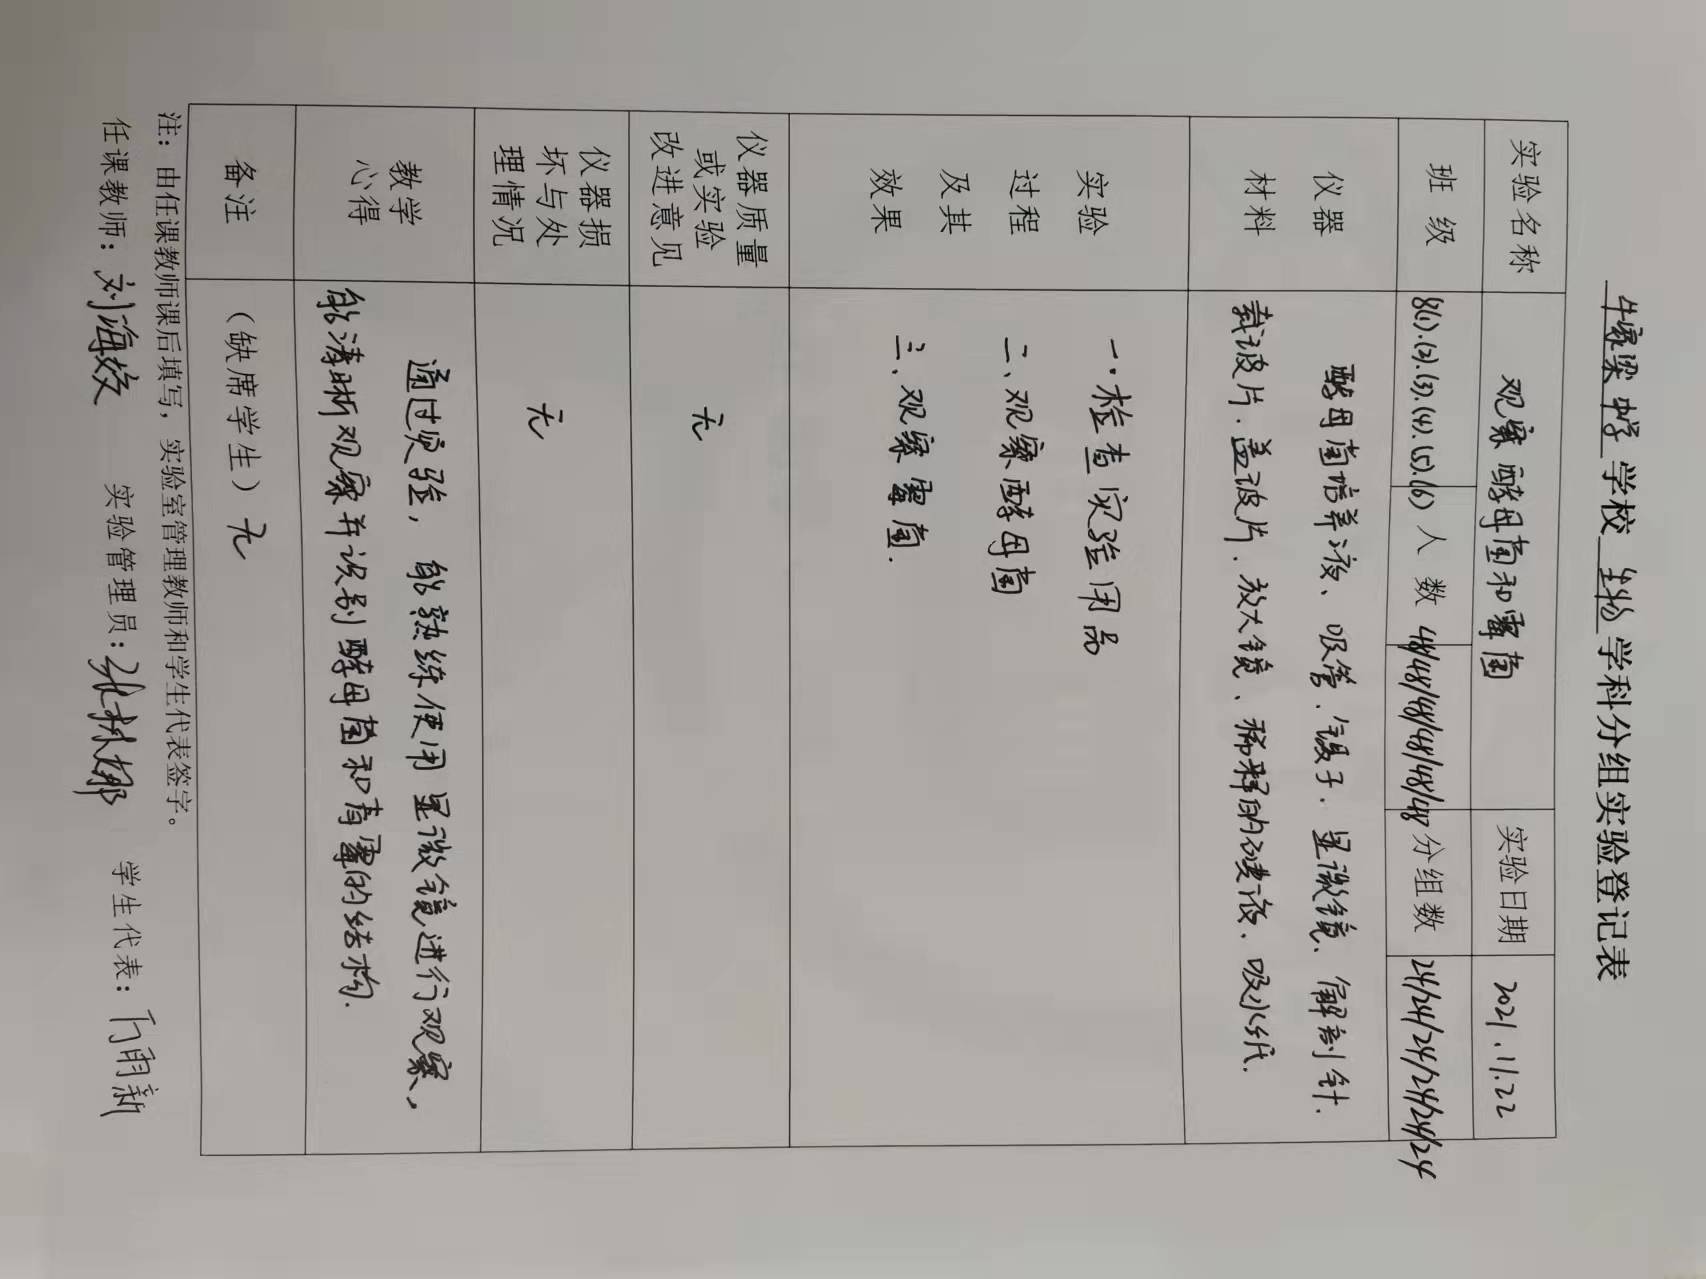 牛家梁中学学校 生物 学科分组实验登记表
实验名称 观察酵母菌和霉菌 实验日期 2021.11.22
班级 8(1).(2).(3).(4).(5).(6) 人数 48/48/48/48/48/48 分组数 24/24/24/24/24/24
仪器材料
酵母菌培养液、吸管、镊子、显微镜、解剖针、
载玻片、盖玻片、放大镜、稀释的碘液、吸水纸.
实验过程及其效果
一.检查实验用品
二、观察酵母菌
三、观察霉菌.
仪器质量或实验改进意见 无
仪器损坏与处理情况 无
教学心得
通过实验，能熟练使用显微镜进行观察，
能清晰观察并识别酵母菌和青霉的结构.
备注 （缺席学生）无
注：由任课教师课后填写，实验室管理教师和学生代表签字。
任课教师：刘海姣 实验管理员：张林娜 学生代表：雨新